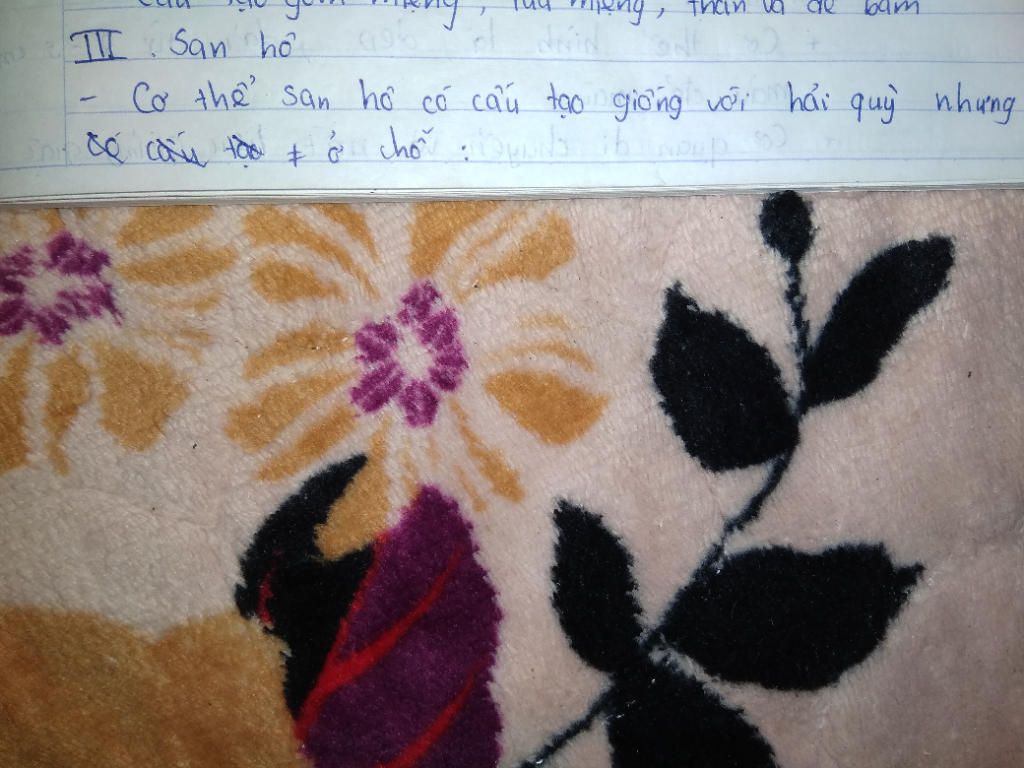 Cấu tạo gồm miệng, tua miệng, thân và đế bám
III. San hô
- Cơ thể san hô có cấu tạo giống với hải quỳ nhưng
có cấu tạo ≠ ở chỗ: